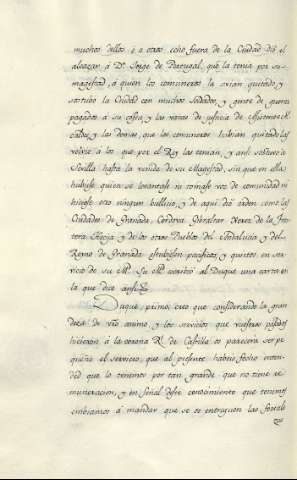 muchos dellos è a otros echo fuera de la Ciudad dió el
alcazar à Dn. Jorge de Portugal, que lo tenia por su
magestad, à quien los comuneros lo avian quitado, y
sostubo la Ciudad con muchos soldados, y gente de guerra
pagados à su costa, y las varas de justicia de Asistente
Alcaldes, y las demas, que los comuneros habian quitado las
volvió à los que por el Rey las tenian, y ansi sostubo a
Sevilla hasta la venida de su Magestad, sin que en ella
hubiese quien se levantase ni tomase voz de comunidad ni
hiciese otro ningun bullicio, y de aqui dió orden como las
Ciudades de Granada, Cordova Gibraltar Xerez de la fron
tera Ecija y de los otros Pueblos del Andalucia y del
Reyno de Granada estubiesen pacificos, y quietos en ser
vicio de su Md. Su Md. escribió al Duque una carta en
la que dice ansi:
Duque, primo, creo que considerando la gran
deza de vro animo y los servicios que vuestros pasados
hicieron à la corona Rl. de Castilla os parecera ser pe
queño el servicio, que al presente habeis fecho enten
ded que lo tenemos por tan grande que no tiene re
muneracion, y en señal deste conocimiento que tenemos
embiamos à mandar que se os entreguen las fortale